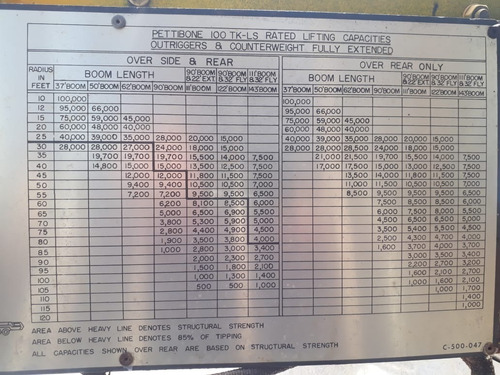 PETTIBONE 100 TK-LS RATED LIFTING CAPACITIES
OUTRIGGERS & COUNTERWEIGHT FULLY EXTENDED
OVER SIDE & REAR OVER REAR ONLY
RADIUS IN FEET BOOM LENGTH 90'BOOM & 22' EXT. 90'BOOM & 32' FLY 111'BOOM & 32' FLY BOOM LENGTH 90'BOOM & 22' EXT. 90'BOOM & 32' FLY 111'BOOM & 32' FLY
37'BOOM 50'BOOM 62'BOOM 90'BOOM 111'BOOM 122'BOOM 143'BOOM 37'BOOM 50'BOOM 62'BOOM 90'BOOM 111'BOOM 122'BOOM 143'BOOM
10 100,000 100,000
12 95,000 66,000 95,000 66,000
15 75,000 59,000 45,000 75,000 59,000 45,000
20 60,000 48,000 40,000 60,000 48,000 40,000
25 40,000 39,000 35,000 28,000 20,000 15,000 40,000 39,000 35,000 28,000 20,000 15,000
30 28,000 28,000 27,000 24,000 18,000 15,000 28,000 28,000 28,500 24,000 18,000 15,000
35 19,700 19,700 19,700 15,500 14,000 7,500 21,000 21,500 19,700 15,500 14,500 7,500
40 14,800 15,000 15,000 13,500 12,500 7,500 17,000 17,500 15,000 13,500 12,500 7,500
45 12,000 12,000 11,800 11,500 7,500 13,500 14,000 11,800 11,500 7,500
50 9,400 9,400 10,500 10,500 7,000 11,000 11,500 10,500 10,500 7,000
55 7,200 7,200 9,500 9,500 6,500 8,500 9,500 9,500 9,500 6,500
60 6,200 8,100 8,500 6,000 7,500 8,500 8,500 6,000
65 5,000 6,500 6,900 5,500 6,000 7,500 8,000 5,500
70 3,800 5,300 5,900 5,000 4,500 6,500 6,500 5,000
75 2,800 4,400 4,900 4,500 3,500 5,400 5,500 4,500
80 1,900 3,500 3,800 4,000 2,500 4,300 4,700 4,000
85 1,000 2,800 3,000 3,400 1,600 3,700 4,000 3,700
90 2,000 2,300 2,700 3,000 3,500 3,400
95 1,500 1,800 2,100 2,200 2,700 3,200
100 1,000 1,300 1,400 1,600 2,100 2,700
105 500 500 1,000 1,000 1,600 2,100
110 1,000 1,700
115 1,400
120 1,000
AREA ABOVE HEAVY LINE DENOTES STRUCTURAL STRENGTH
AREA BELOW HEAVY LINE DENOTES 85% OF TIPPING
ALL CAPACITIES SHOWN OVER REAR ARE BASED ON STRUCTURAL STRENGTH C-500-047